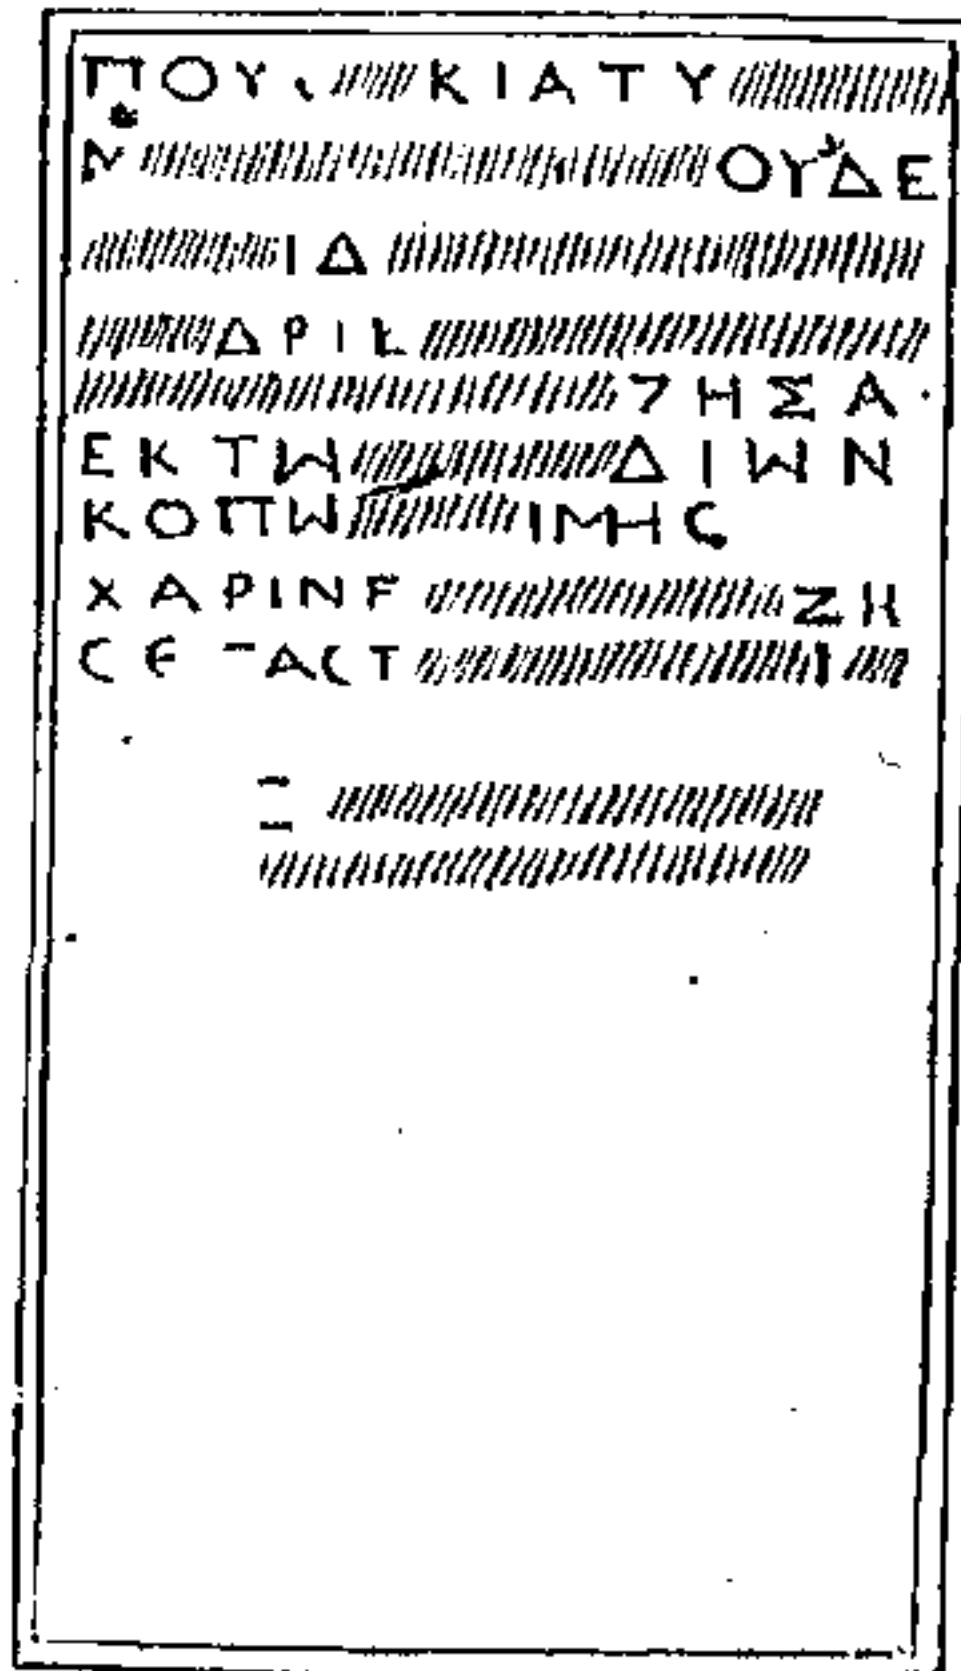 ΠΟΥ ΚΙΑΤΥ
Ν ΟΥΔΕ
ΙΔ
ΔΡΙΚ
ΖΗΣΑ
ΕΚΤѠ ΔΙѠΝ
ΚΟΠѠ ΙΜΗϹ
ΧΑΡΙΝΕ ΖΗ
ϹΕ ΑϹΤ Ι